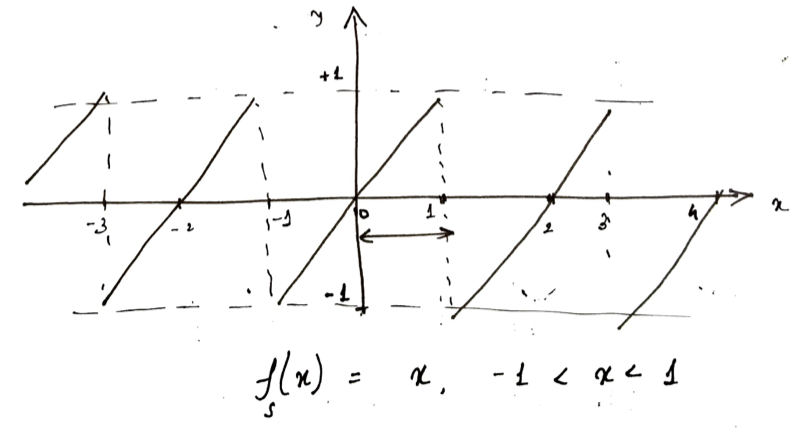 y
+1
-3 -2 -1 0 1 2 3 4 x
-1
f_s(x) = x, -1 < x < 1